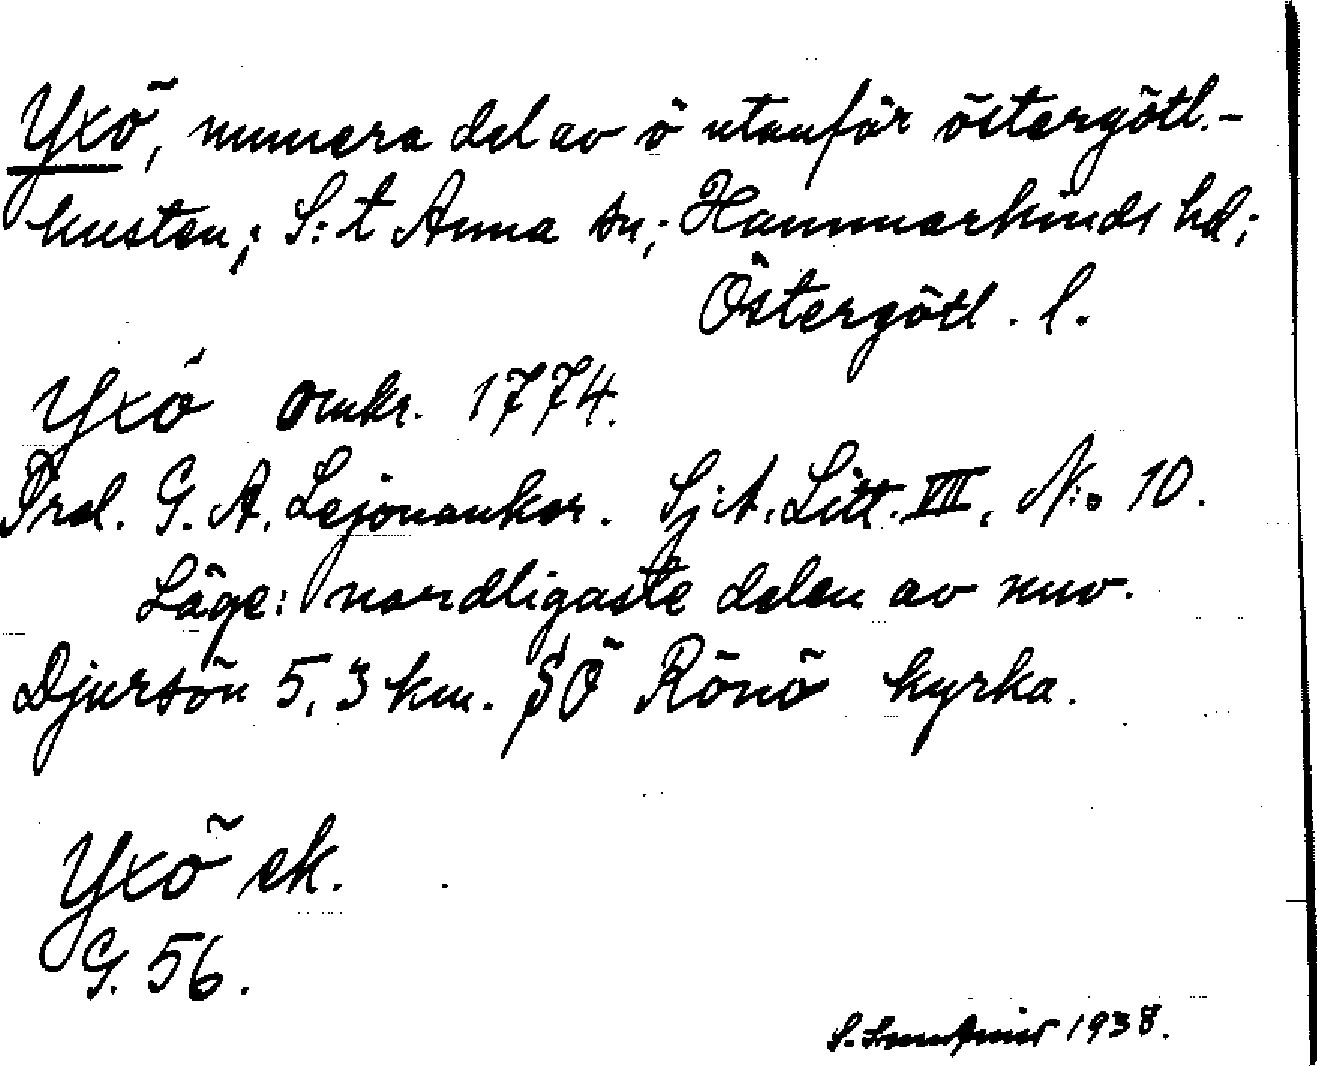 Yxö, numera del av ö utanför östergötl.-
kusten; S:t Anna sn; Hammarkinds hd;
Östergötl. l.
Yxö omkr. 1774.
Prol. G. A. Lejonankar. Sj.A. Litt. VIII, N:o 10.
Läge: nordligaste delen av nuv.
Djursön 5,3 km. SÖ Rönö kyrka.
Yxö ek.
G. 56.
1938.